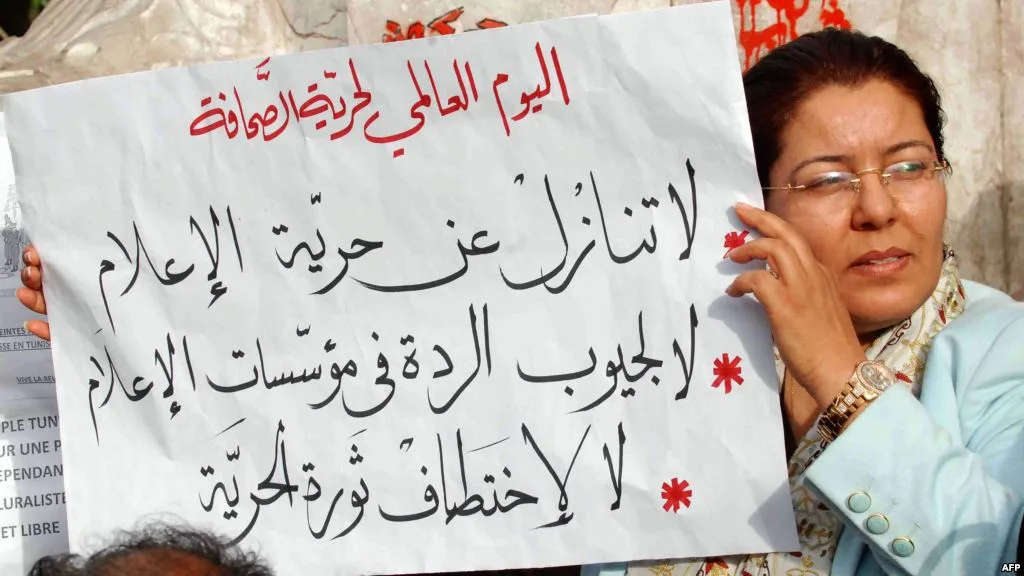 اليوم العالمي لحريّة الصَّحافة
* لا تنازُلْ عن حريّة الإعلام
* لا لجيوب الردة في مؤسّسات الإعلام
* لا لإختطافْ ثورة الحريَّة
SSE EN TUNIS
VIVE LA
PLE TUN
UR UNE P
ÉPENDAN
LURALISTE
ET LIBRE
AFP